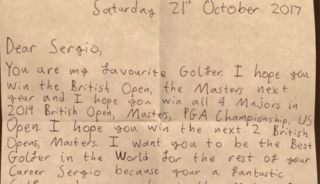 Saturday 21st October 2017
Dear Sergio,
You are my favourite Golfer. I hope you
win the British Open, the Masters next
year and I hope you win all 4 Majors in
2019 British Open, Masters, PGA Championship, US
Open. I hope you win the next 2 British
Opens, Masters. I want you to be the Best
Golfer in the World for the rest of your
Career Sergio because your a fantastic